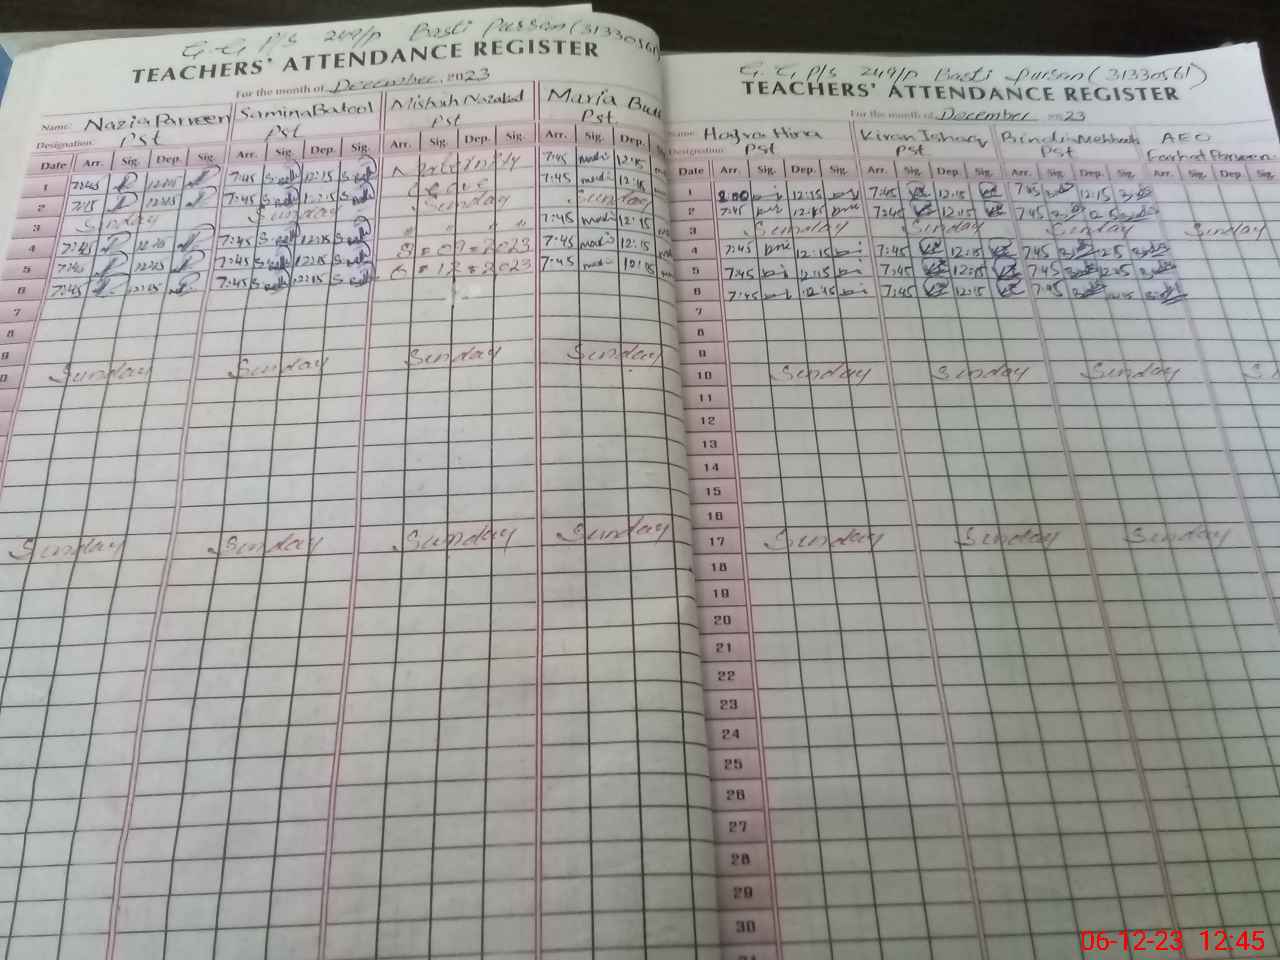 G.G P/S 249/P Basti Pursan (31330561)
TEACHERS' ATTENDANCE REGISTER
For the month of December 2023
Name: Nazia Parveen Samina Batool Misbah Nazabad Maria
Designation: Pst Pst Pst Pst
Date Arr. Sig. Dep. Sig. Arr. Sig. Dep. Sig. Arr. Sig. Dep. Sig. Arr. Sig. Dep.
1 7:45 12:15 7:45 12:15 Maternity 7:45 12:15
2 7:45 12:15 7:45 12:15 Leave 7:45 12:15
3 Sunday Sunday Sunday Sunday
4 7:45 12:15 7:45 12:15 7:45 12:15
5 7:45 12:15 7:45 12:15 8-09-2023 7:45 12:15
6 7:45 12:15 7:45 12:15 6-12-2023 7:45 12:15
7
8
9
10 Sunday Sunday Sunday Sunday
Sunday Sunday Sunday Sunday
G.G P/S 249/P Basti Pursan (31330561)
TEACHERS' ATTENDANCE REGISTER
For the month of December 2023
Name: Hajra Hina Kiran Ishaq Bindia Mehtab AEO
Designation: Pst Pst Pst Farhat Parveen
Date Arr. Sig. Dep. Sig. Arr. Sig. Dep. Sig. Arr. Sig. Dep. Sig. Arr. Sig. Dep. Sig.
1 8:00 12:15 7:45 12:15 7:45 12:15
2 7:45 12:15 7:45 12:15 7:45
3 Sunday Sunday Sunday Sunday
4 7:45 12:15 7:45 12:15 7:45
5 7:45 12:15 7:45 12:15 7:45
6 7:45 12:15 7:45 12:15 7:45
7
8
9
10 Sunday Sunday Sunday
11
12
13
14
15
16
17 Sunday Sunday Sunday
18
19
20
21
22
23
24
25
26
27
28
29
30
06-12-23 12:45